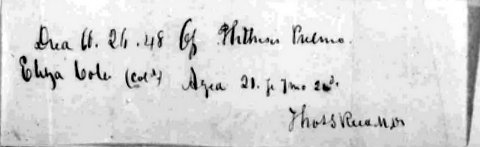 Died 11. 26. 48 Of Phthisis Pulmo.
Eliza Cole (Col'd) Aged 21. y 7 mo 20 d.
Thos S Reed M.D